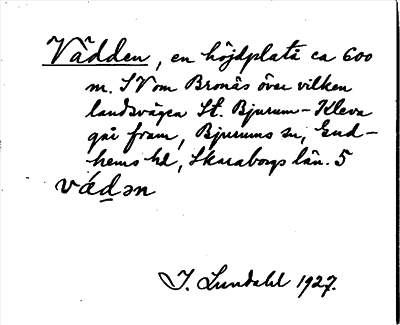 Vädden, en höjdplatå ca 600
m. SV om Bronäs över vilken
landsvägen St. Bjurum-Kleva
går fram, Bjurums sn, Gud-
hems hd, Skaraborgs län. 5
vádən
J. Lundahl 1927.